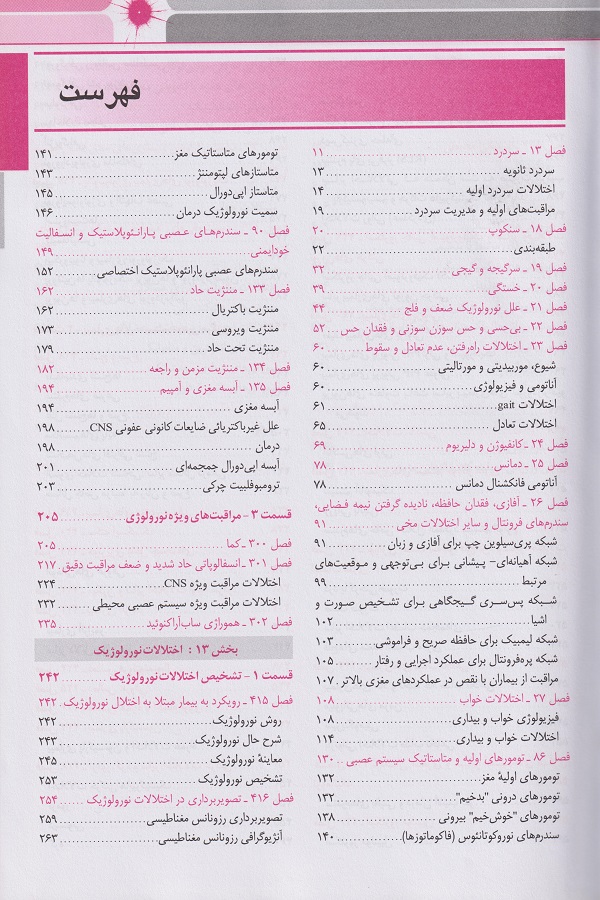 فهرست
فصل ۱۳ ـ سردرد ........ ۱۱
سردرد ثانویه ........ ۱۳
اختلالات سردرد اولیه ........ ۱۴
مراقبت‌های اولیه و مدیریت سردرد ........ ۱۹
فصل ۱۸ ـ سنکوپ ........ ۲۰
طبقه‌بندی ........ ۲۲
فصل ۱۹ ـ سرگیجه و گیجی ........ ۳۲
فصل ۲۰ ـ خستگی ........ ۳۹
فصل ۲۱ ـ علل نورولوژیک ضعف و فلج ........ ۴۴
فصل ۲۲ ـ بی‌حسی و حس سوزن سوزنی و فقدان حس ... ۵۲
فصل ۲۳ ـ اختلالات راه‌رفتن، عدم تعادل و سقوط ........ ۶۰
شیوع، موربیدیتی و مورتالیتی ........ ۶۰
آناتومی و فیزیولوژی ........ ۶۰
اختلالات gait ........ ۶۱
اختلالات تعادل ........ ۶۵
فصل ۲۴ ـ کانفیوژن و دلیریوم ........ ۶۹
فصل ۲۵ ـ دمانس ........ ۷۸
آناتومی فانکشنال دمانس ........ ۷۸
فصل ۲۶ ـ آفازی، فقدان حافظه، نادیده گرفتن نیمه فضایی،
سندرم‌های فرونتال و سایر اختلالات مخی ........ ۹۱
شبکه پری‌سیلوین چپ برای آفازی و زبان ........ ۹۱
شبکه آهیانه‌ای- پیشانی برای بی‌توجهی و موقعیت‌های
مرتبط ........ ۹۹
شبکه پس‌سری گیجگاهی برای تشخیص صورت و
اشیا ........ ۱۰۲
شبکه لیمبیک برای حافظه صریح و فراموشی ........ ۱۰۳
شبکه پره‌فرونتال برای عملکرد اجرایی و رفتار ........ ۱۰۵
مراقبت از بیماران با نقص در عملکردهای مغزی بالاتر . ۱۰۷
فصل ۲۷ ـ اختلالات خواب ........ ۱۰۸
فیزیولوژی خواب و بیداری ........ ۱۰۸
اختلالات خواب و بیداری ........ ۱۱۴
فصل ۸۶ ـ تومورهای اولیه و متاستاتیک سیستم عصبی .. ۱۳۰
تومورهای اولیهٔ مغز ........ ۱۳۲
تومورهای درونی "بدخیم" ........ ۱۳۲
تومورهای "خوش‌خیم" بیرونی ........ ۱۳۸
سندرم‌های نوروکوتانئوس (فاکوماتوزها) ........ ۱۴۰
تومورهای متاستاتیک مغز ........ ۱۴۱
متاستازهای لپتومننژ ........ ۱۴۳
متاستاز اپی‌دورال ........ ۱۴۵
سمیت نورولوژیک درمان ........ ۱۴۶
فصل ۹۰ ـ سندرم‌های عصبی پارانئوپلاستیک و انسفالیت
خودایمنی ........ ۱۴۹
سندرم‌های عصبی پارانئوپلاستیک اختصاصی ........ ۱۵۲
فصل ۱۳۳ ـ مننژیت حاد ........ ۱۶۲
مننژیت باکتریال ........ ۱۶۲
مننژیت ویروسی ........ ۱۷۳
مننژیت تحت حاد ........ ۱۷۹
فصل ۱۳۴ ـ مننژیت مزمن و راجعه ........ ۱۸۲
فصل ۱۳۵ ـ آبسه مغزی و آمپیم ........ ۱۹۴
آبسه مغزی ........ ۱۹۴
علل غیرباکتریائی ضایعات کانونی عفونی CNS ........ ۱۹۸
درمان ........ ۱۹۸
آبسه اپی‌دورال جمجمه‌ای ........ ۲۰۱
ترومبوفلبیت چرکی ........ ۲۰۳
قسمت ۳ – مراقبت‌های ویژه نورولوژی ........ ۲۰۵
فصل ۳۰۰ ـ کما ........ ۲۰۵
فصل ۳۰۱ ـ انسفالوپاتی حاد شدید و ضعف مراقبت دقیق . ۲۱۷
اختلالات مراقبت ویژه CNS ........ ۲۲۴
اختلالات مراقبت ویژه سیستم عصبی محیطی ........ ۲۳۲
فصل ۳۰۲ ـ هموراژی ساب‌آراکنوئید ........ ۲۳۵
بخش ۱۳ : اختلالات نورولوژیک
قسمت ۱ – تشخیص اختلالات نورولوژیک ........ ۲۴۲
فصل ۴۱۵ ـ رویکرد به بیمار مبتلا به اختلال نورولوژیک . ۲۴۲
روش نورولوژیک ........ ۲۴۲
شرح حال نورولوژیک ........ ۲۴۳
معاینهٔ نورولوژیک ........ ۲۴۵
تشخیص نورولوژیک ........ ۲۵۳
فصل ۴۱۶ ـ تصویربرداری در اختلالات نورولوژیک ........ ۲۵۴
تصویربرداری رزونانس مغناطیسی ........ ۲۵۹
آنژیوگرافی رزونانس مغناطیسی ........ ۲۶۳